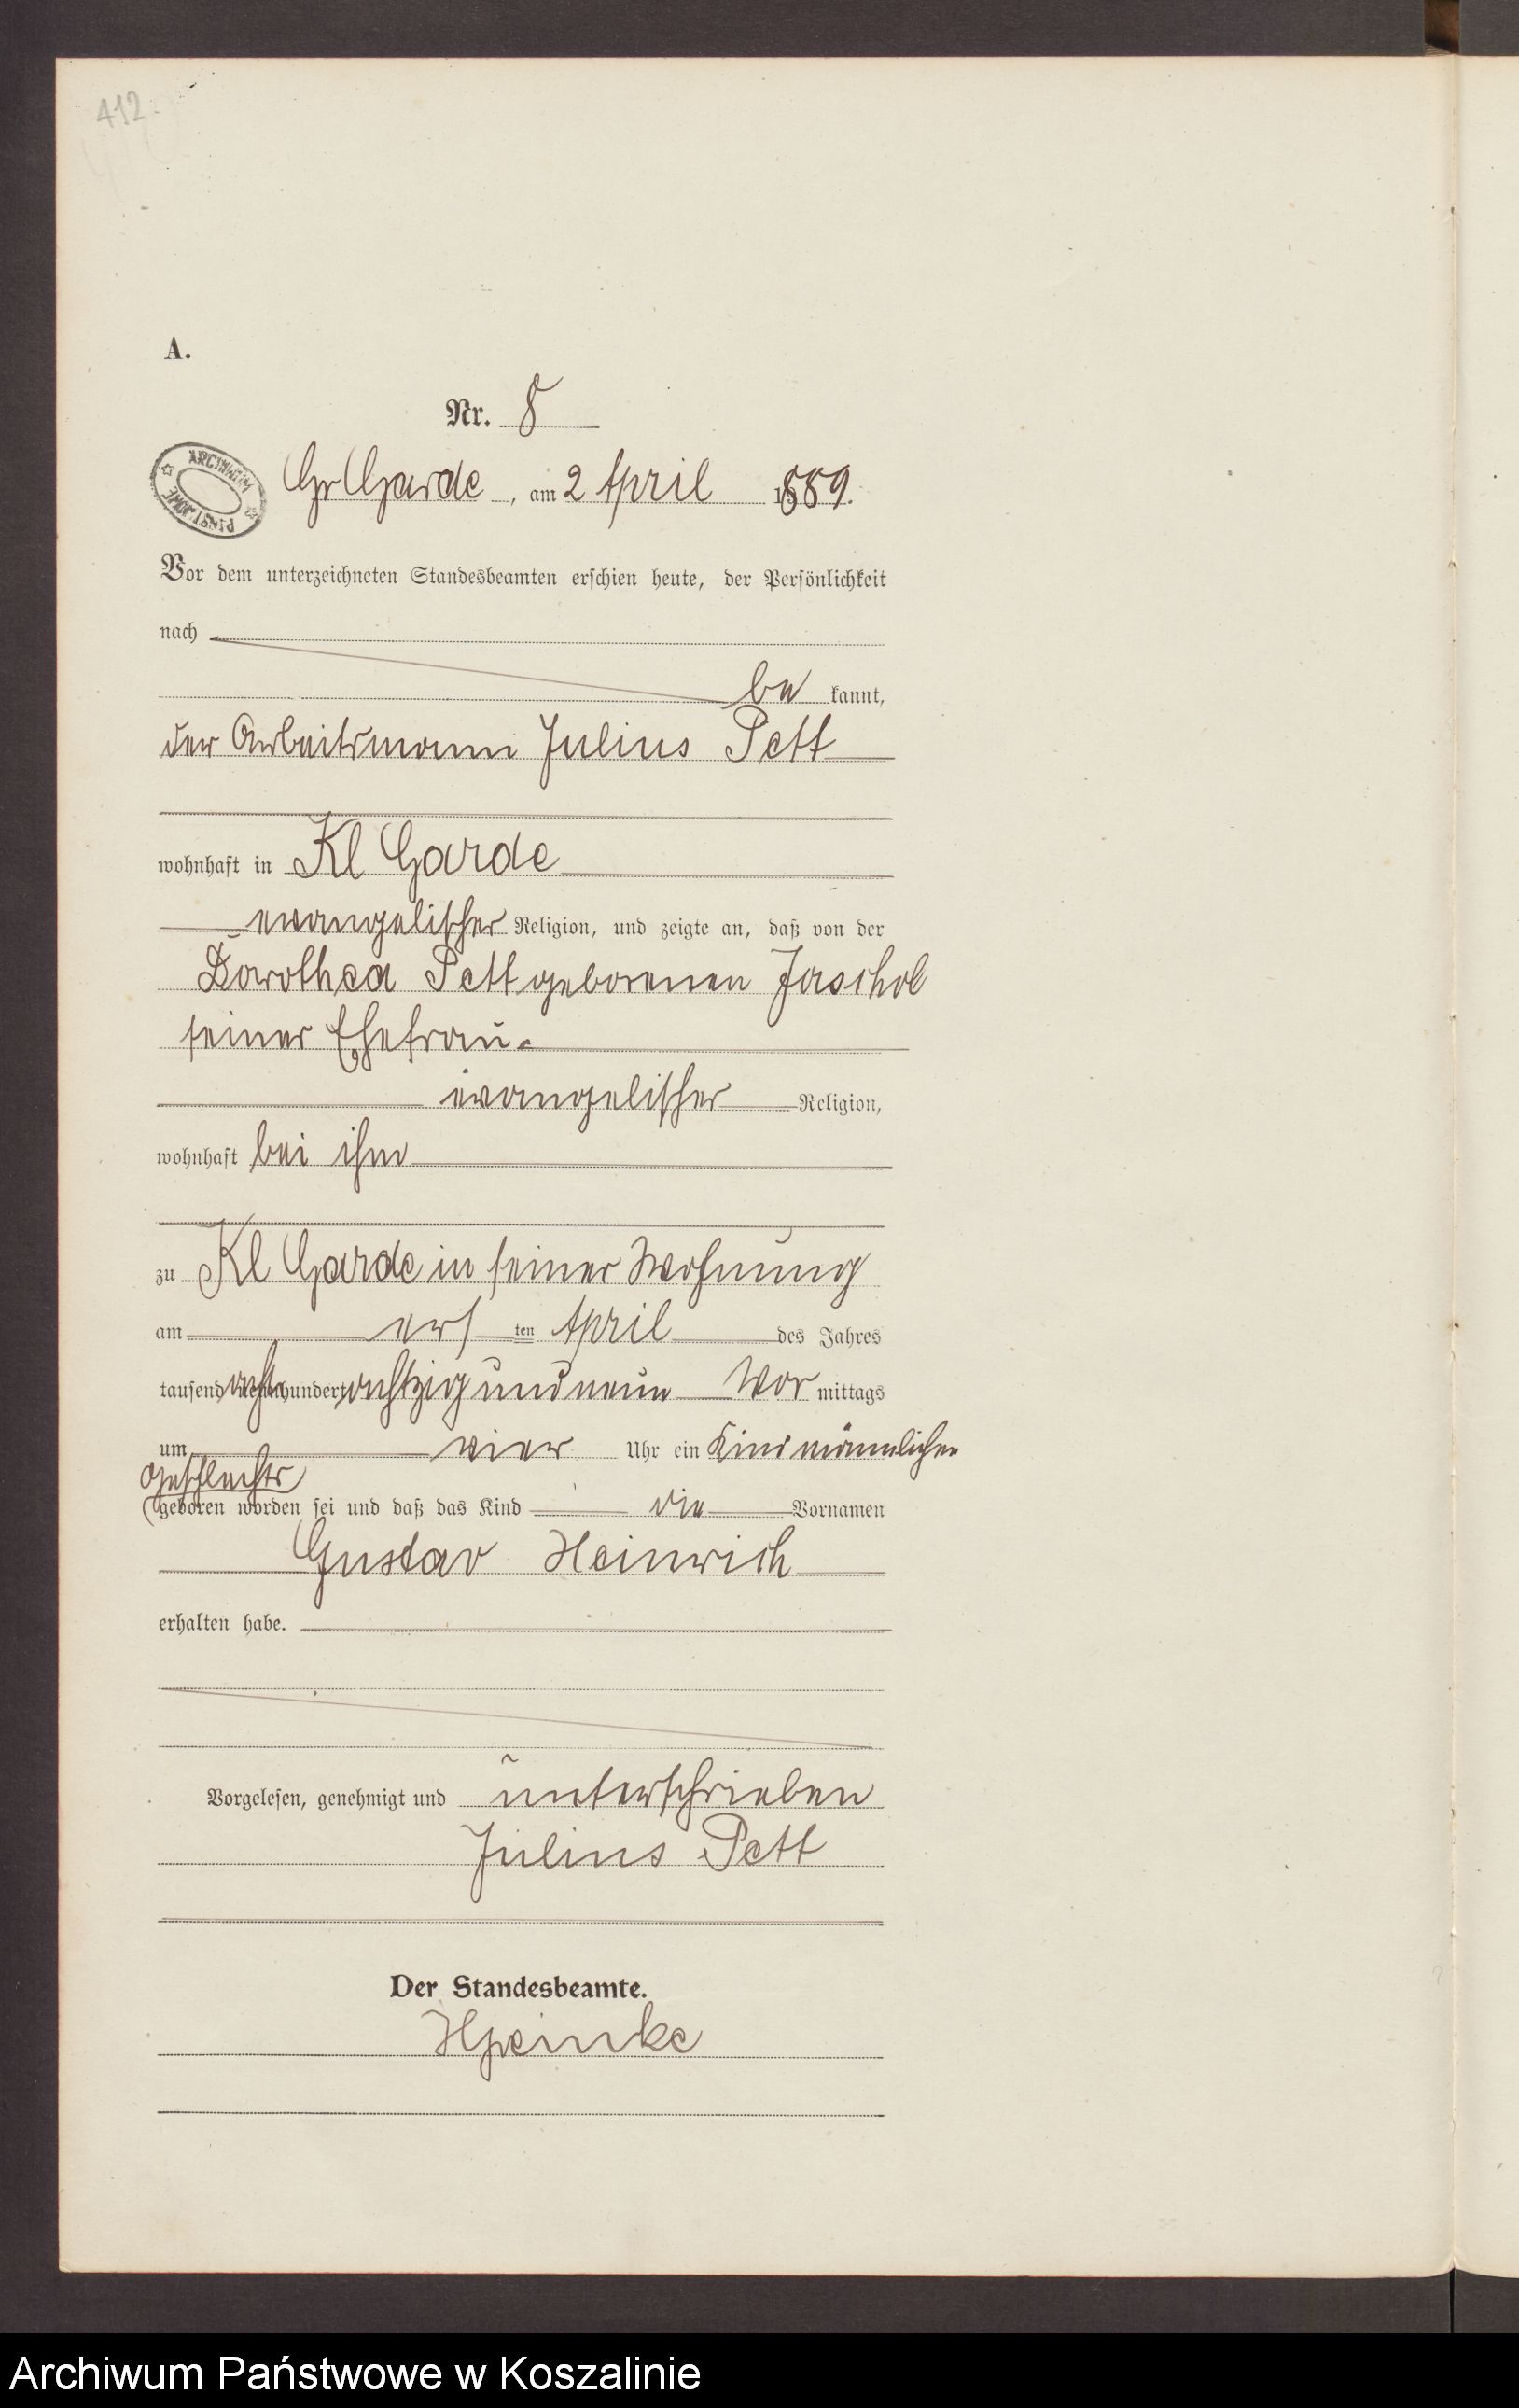 412.
A.
Nr. 8
ARCHIWUM PAŃSTWOWE
Gr Garde, am 2 April 1889.
Vor dem unterzeichneten Standesbeamten erschien heute, der Persönlichkeit
nach
be kannt,
der Arbeitsmann Julius Pett
wohnhaft in Kl Garde
evangelischer Religion, und zeigte an, daß von der
Dorothea Pett geborenen Jaschol
seiner Ehefrau.
evangelischer Religion,
wohnhaft bei ihm
zu Kl Garde in seiner Wohnung
am ers ten April des Jahres
tausend acht hundert achtzig und neun Vor mittags
um vier Uhr ein Kind männlichen
Geschlechts
geboren worden sei und daß das Kind die Vornamen
Gustav Heinrich
erhalten habe.
Vorgelesen, genehmigt und unterschrieben
Julius Pett
Der Standesbeamte.
Archiwum Państwowe w Koszalinie